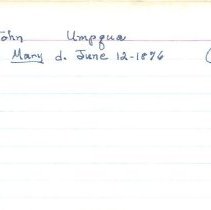 John Umpqua
Mary d. June 12-1896 (